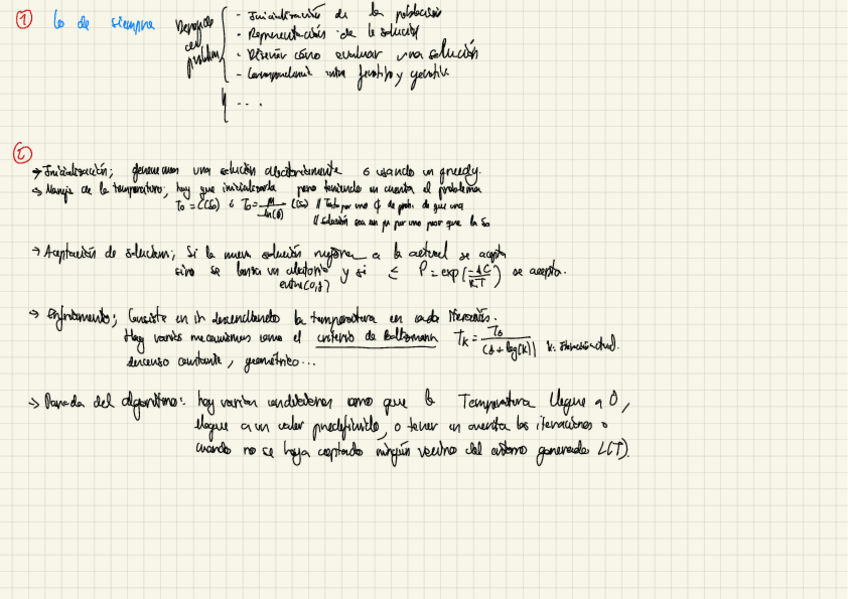 ① lo de siempre
Depende del problema
- Inicialización de la población
- Representación de la solución
- Diseñar cómo evaluar una solución
- Correspondencia entre fenotipo y genotipo
...
②
→ Inicialización; generamos una solución aleatoriamente o usando un greedy.
→ Manejo de la temperatura; hay que inicializarla pero teniendo en cuenta el problema
T₀ = C(S₀) ó T₀ = μ / -ln(φ) C(S₀) // Tanto por uno φ de prob. de que una
// solución sea un μ por uno peor que la S₀
→ Aceptación de solución; Si la nueva solución mejora a la actual se acepta
sino se lanza un aleatorio y si ≤ P = exp(-ΔC / K·T) se acepta.
entre (0,1)
→ Enfriamiento; Consiste en ir descendiendo la temperatura en cada iteración.
Hay varios mecanismos como el criterio de Boltzmann T_K = T₀ / (1 + log(K)) K: iteración actual.
descenso constante, geométrico...
→ Parada del algoritmo: hay varias condiciones como que la Temperatura llegue a 0,
llegue a un valor predefinido, o tener en cuenta las iteraciones o
cuando no se haya aceptado ningún vecino del entorno generado L(T).